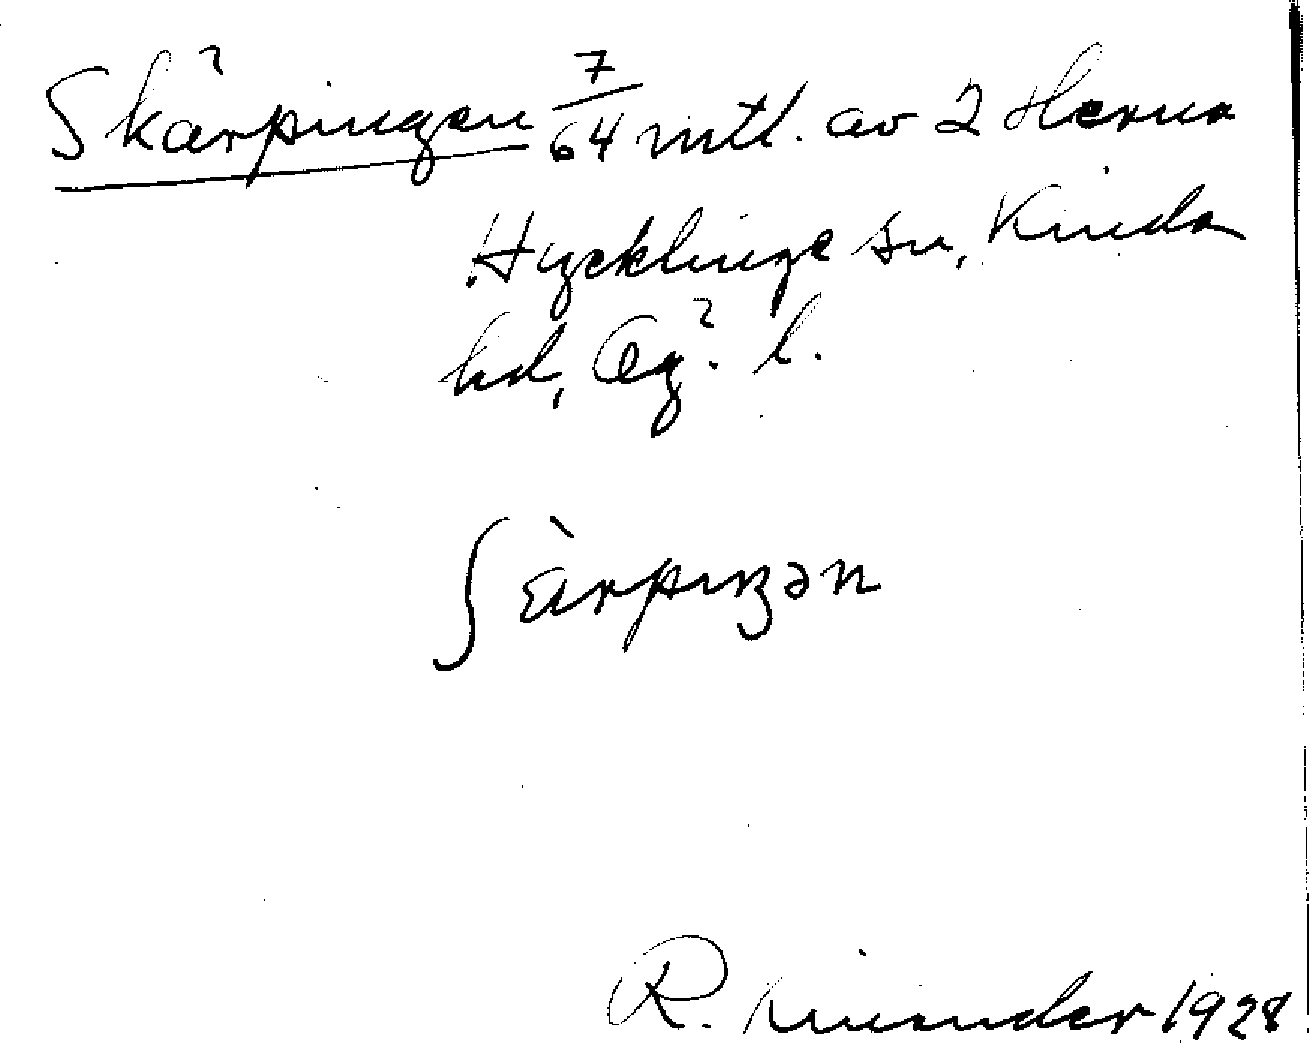 Skärpingen 7/64 mtl. av 2 Herna
Hycklinge sn, Kinda
hd, Ög. l.
ʃàrpiŋən
R. Linder 1928